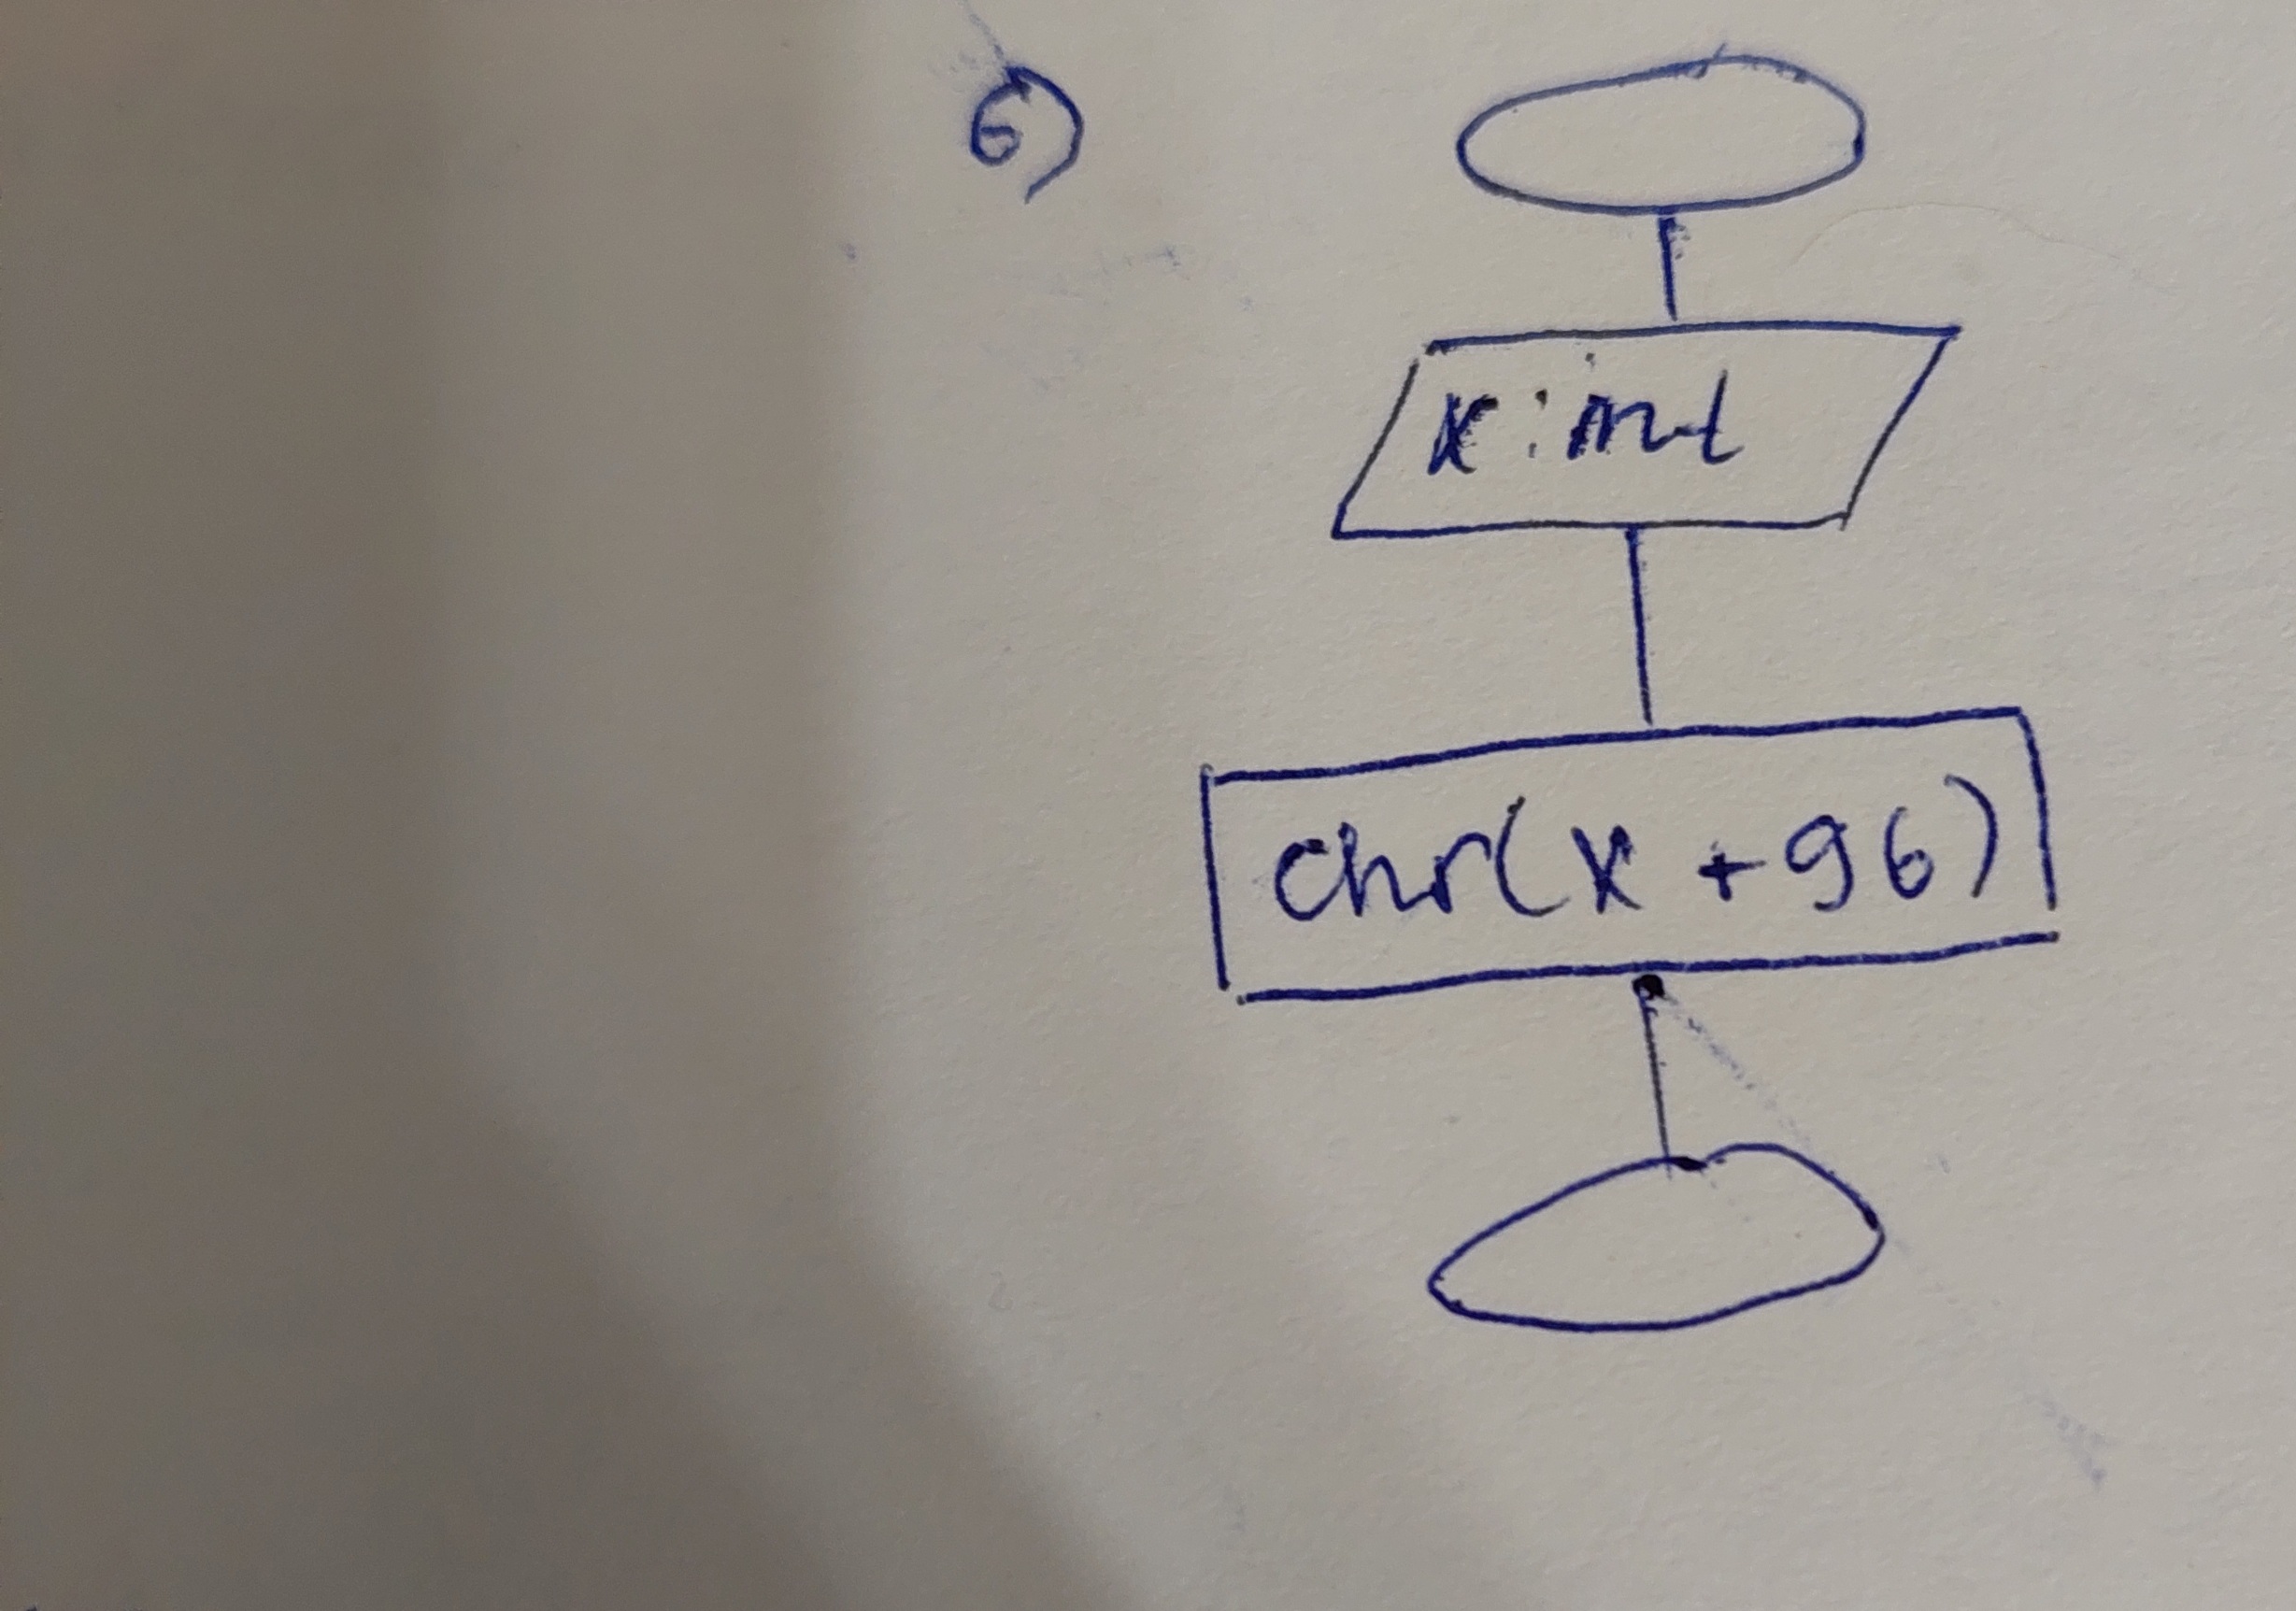 6)
x : int
chr(x + 96)